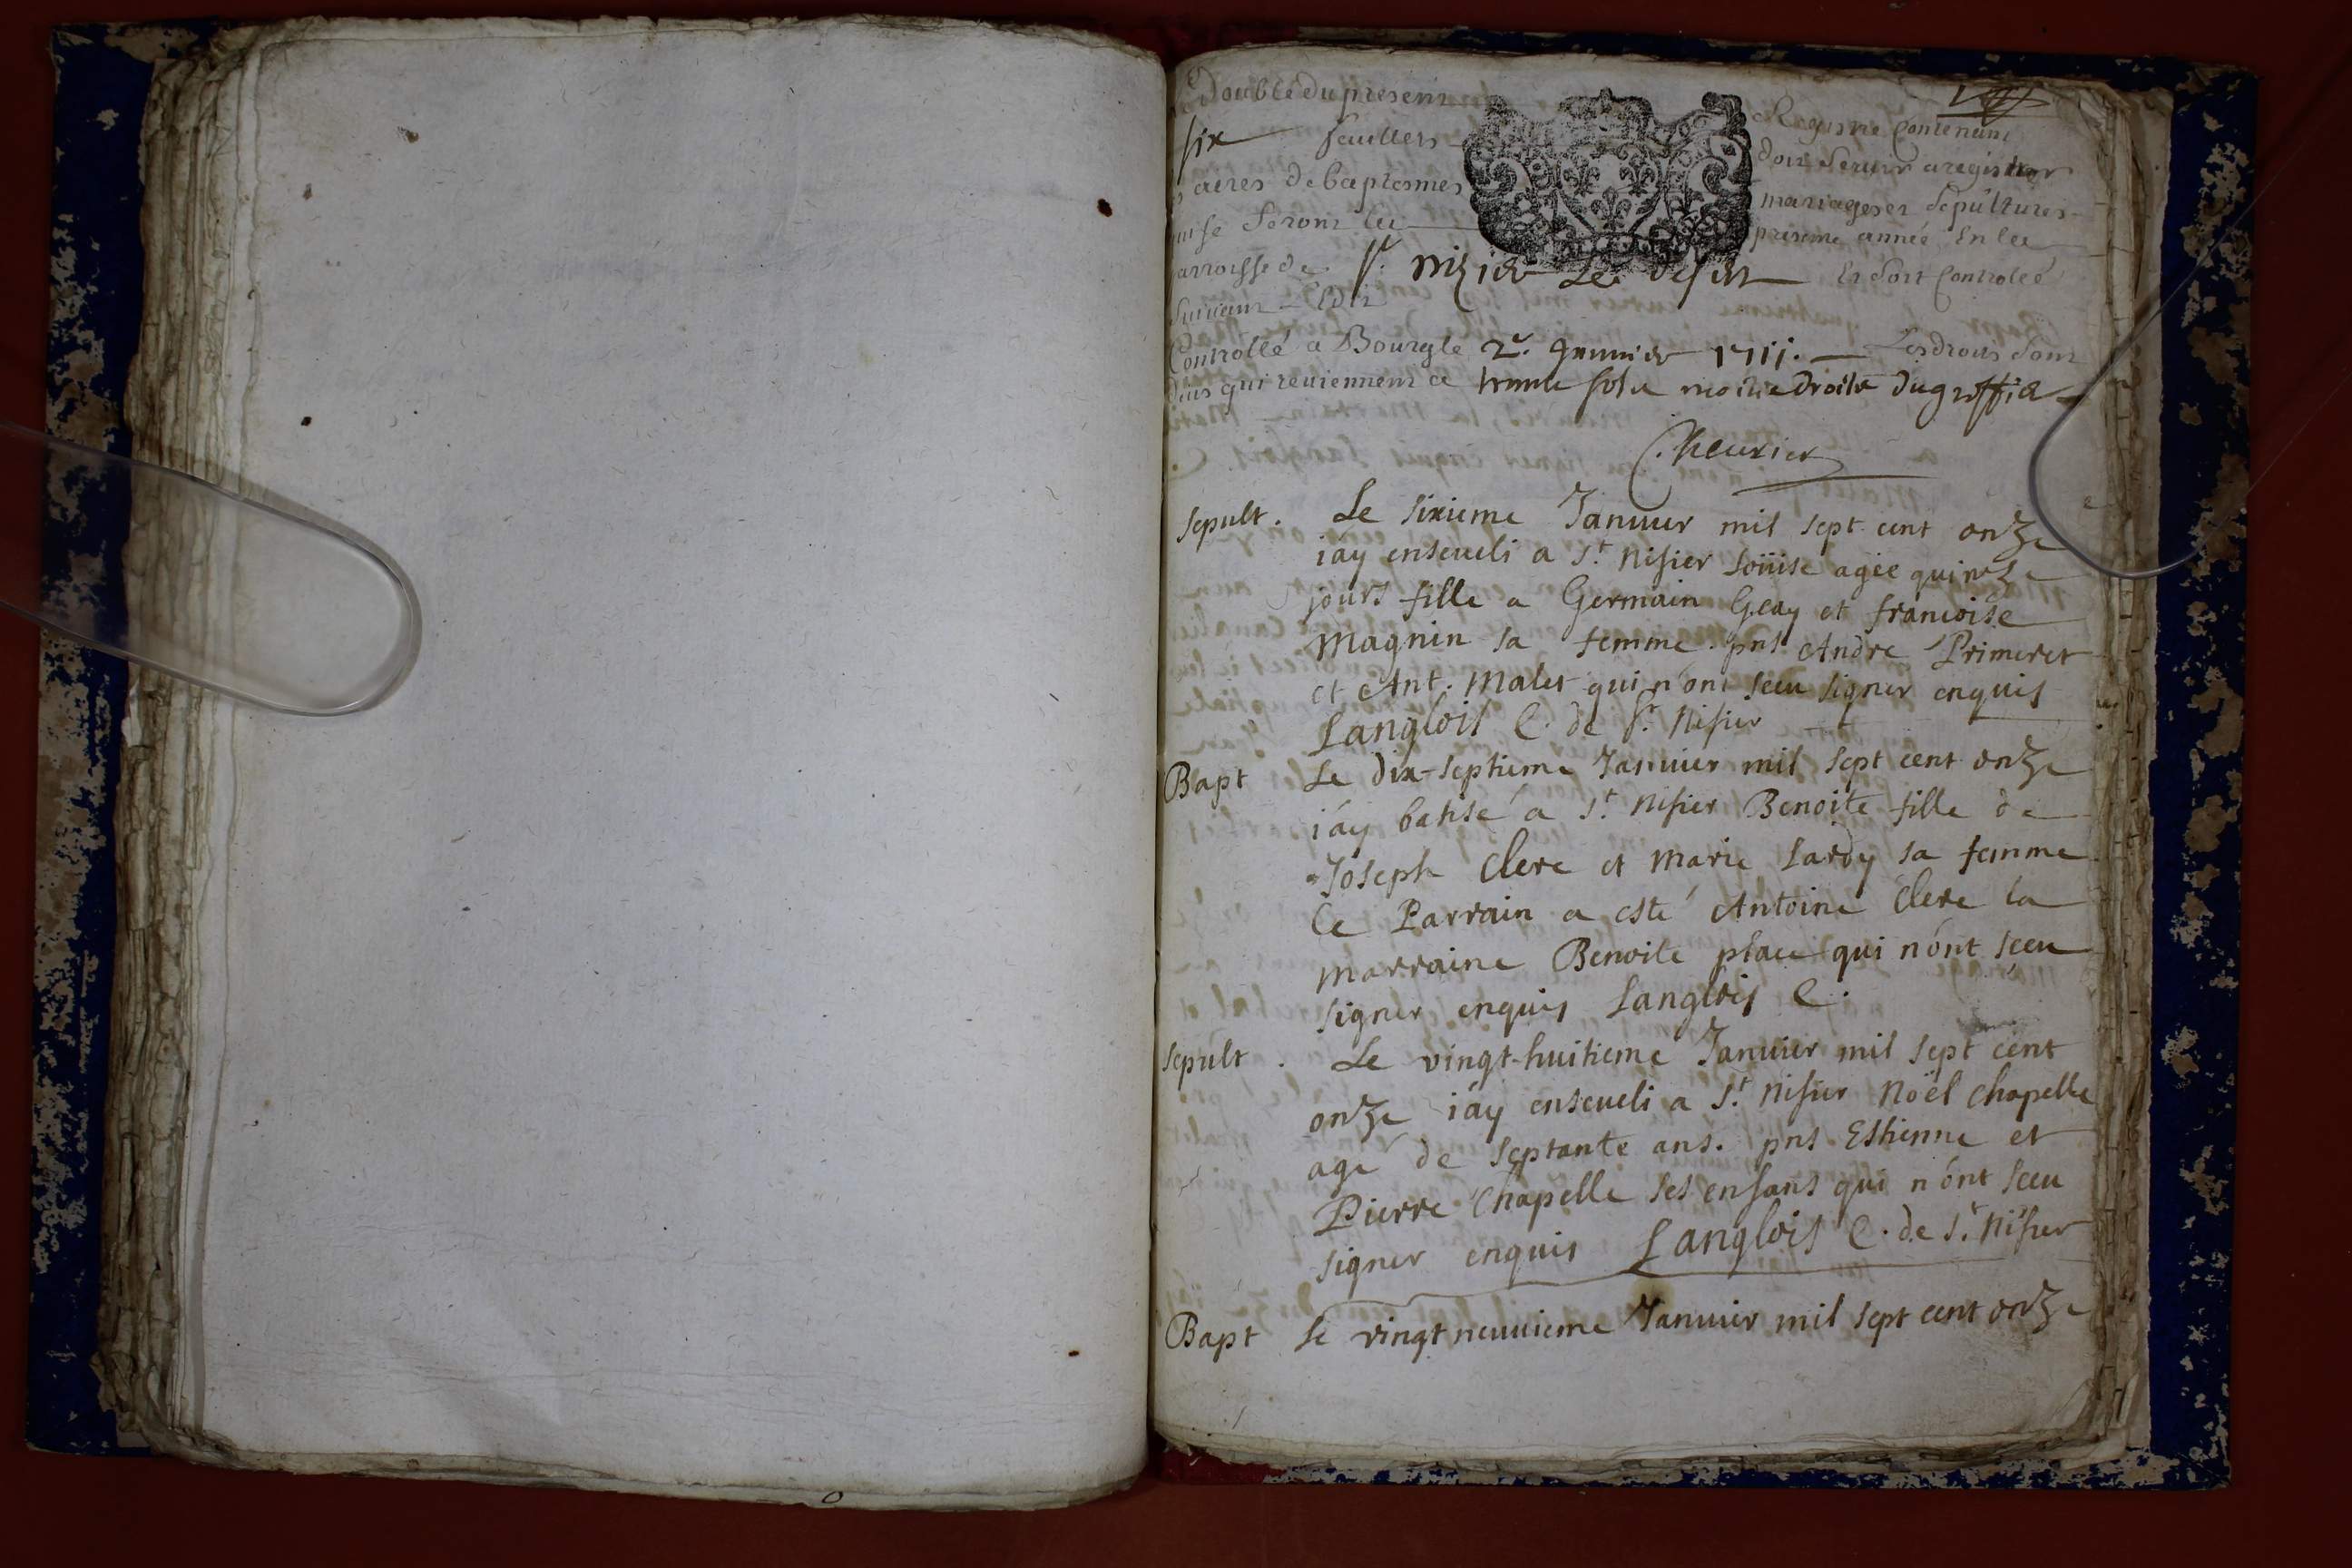 Double du present Registre Contenant
six feuillets doit Servir a registrer
actes de baptesmes mariages et Sepultures
qui se feront la presente année En la
parroisse de St. nizier Le desert Et Sort Controlée
Suivant Edit
Controllé a Bourg le 2e. Januier 1711. Les droits Sont
deus qui reviennent a trente sols moitie droits du greffie
Cheurier
Sepult. Le sixieme Januier mil sept cent onze
iay enseueli a St. Nisier Loüise agée quinze
jours fille a Germain Geay et francoise
Magnin sa femme. pnt Andre Primeret
et Ant. Malet qui n'ont sceu signer enquis
Langlois C. de St. Nisier
Bapt Le dix-septieme Januier mil sept cent onze
i'ay batisé a St. Nisier Benoite fille de
Joseph Clere et Marie Lardy sa femme
le Parrain a esté Antoine Clere la
marraine Benoite place qui n'ont sceu
signer enquis Langlois C.
Sepult. Le vingt-huitieme Januier mil sept cent
onze i'ay enseueli a St. Nisier Noël Chapelle
agé de septante ans. pnt Estienne et
Pierre Chapelle ses enfans qui n'ont sceu
signer enquis Langlois C. de St. Nisier
Bapt Le vingt neuuieme Januier mil sept cent onze